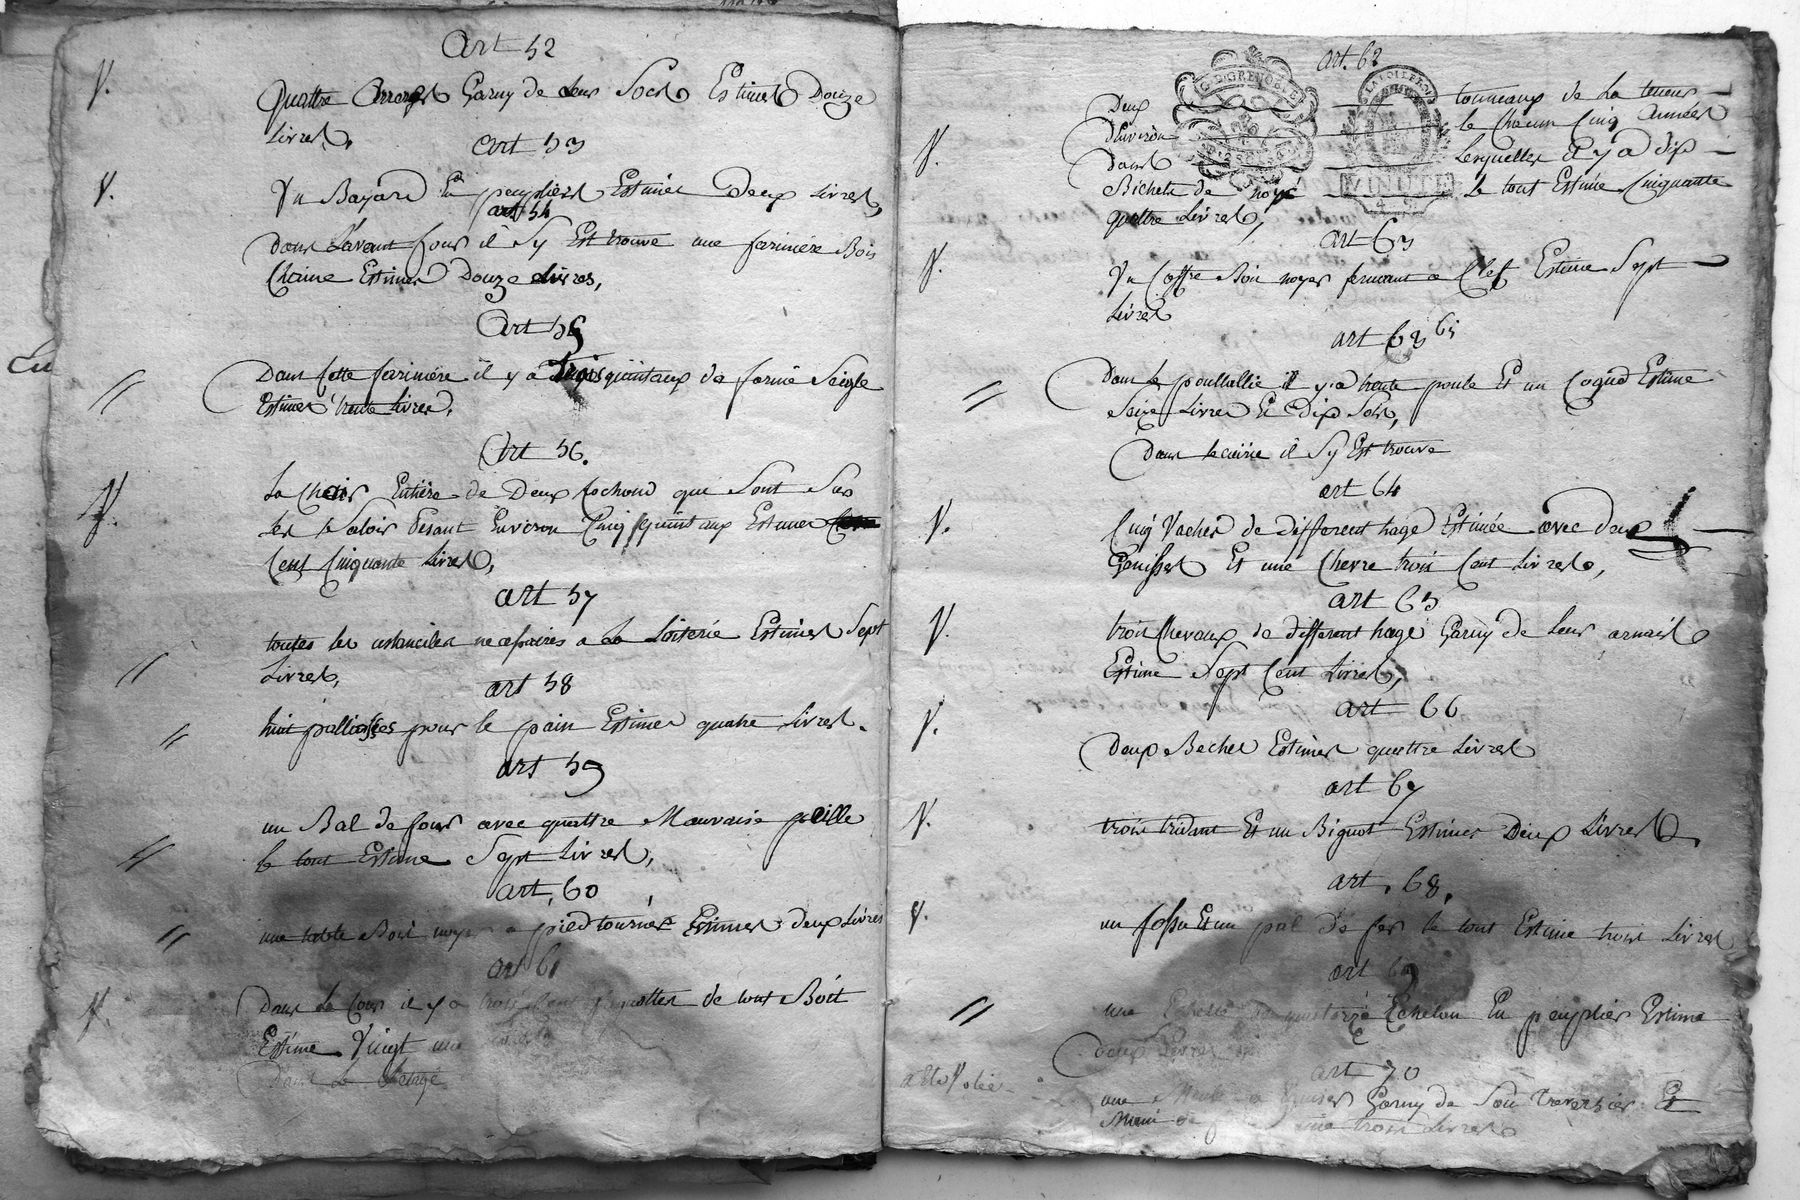 Art 52
Quattre Garny de leur Socs Estimes Douze
Livres,
art 53
Vn Bayard En peupliers Estimée Deux Livres,
art 54
Dans Lavant four il Sy Est trouve une farinière Bois
Chaine Estimes Douze Livres,
Art 55
Dans Cette farinière il y a trois quintaux de farine Seigle
Estimes trente Livres,
Art 56.
La Chair Entière de Deux Cochond qui Sont Sur
Les le Saloir Pesant Environ Cinq quintaux Estimes
Cent Cinquante Livres,
art 57
toutes les ustanciles necessaires a La Laiterie Estimes Sept
Livres,
art 58
huit palliasses pour le pain Estimes quatre Livres.
art 59
un Bal de four avec quattre Mauvaise
le tout Estime Sept Livres,
art, 60
une table Bois noyer a pied tourner Estimes deux Livres
art 61
Dans La Cour il y a trois Cent de tout Boit
Estime Vingt une
Dans Le
art. 62
G. D. GRENOBLE
LA LOI LE ROI
MINUTE
4 S.
Deux tonneaux de La teneur
Denviron le Chacun Cinq
Dans Lesquelles il y a dix
Bichets de le tout Estimée Cinquante
quattre Livres,
art 63
Vn Coffre Bois noyer fermant a Clef Estime Sept
Livres
art 63 bis
Dans le poullallie il y a trente poule Et un Coqud Estime
Seize Livres Et Dix Sols,
Dans lecuirie il Sy Est trouve
art 64
Cinq Vaches de different hage Estimée avec deux
Genisses Et une Chevre trois Cent Livres,
art 65
trois Chevaux de different hage Garny de Leur arnais
Estime Sept Cent Livres,
art 66
Deux Beches Estimes quattre Livres
art 67
trois tridant Et un Bignot Estimes Deux Livres,
art. 68.
un fossu Et un pal De fer le tout Estime trois Livres
art 69
une Echelle De quatorze Echelon En peuplier Estime
deux Livres
art 70
une Meule a Garny de Son traversier Et
Main de trois Livres